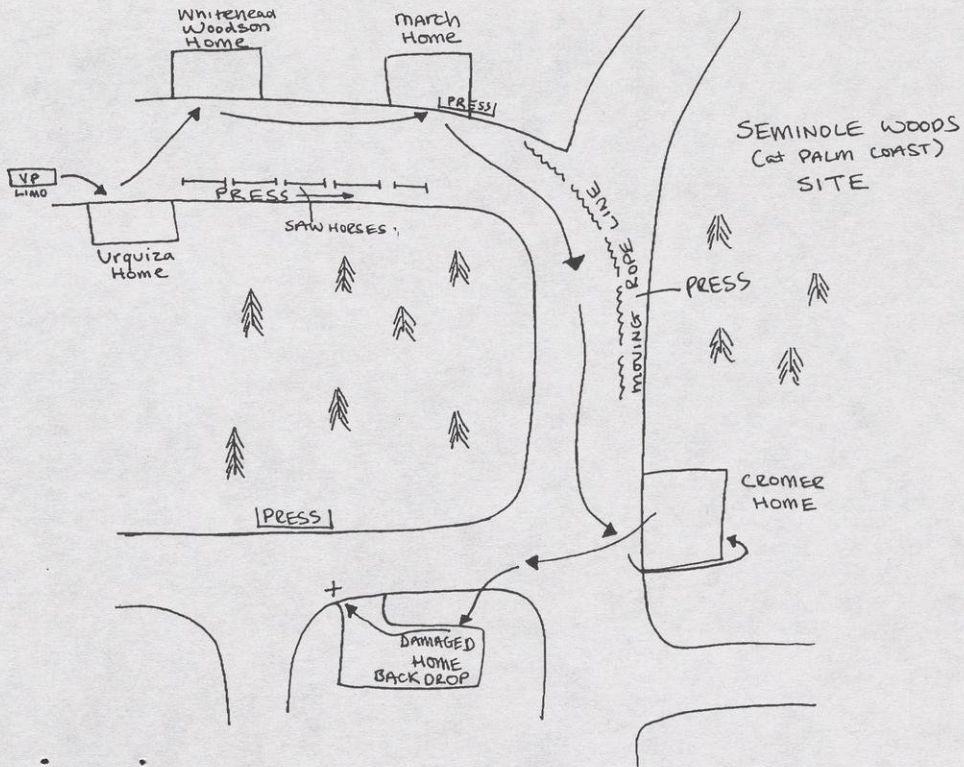 Whitehead
Woodson
Home
March
Home
PRESS
SEMINOLE WOODS
(at PALM COAST)
SITE
VP
LIMO
PRESS
SAWHORSES.
Urquiza
Home
MOVING ROPE LINE
PRESS
CROMER
HOME
PRESS
DAMAGED
HOME
BACKDROP